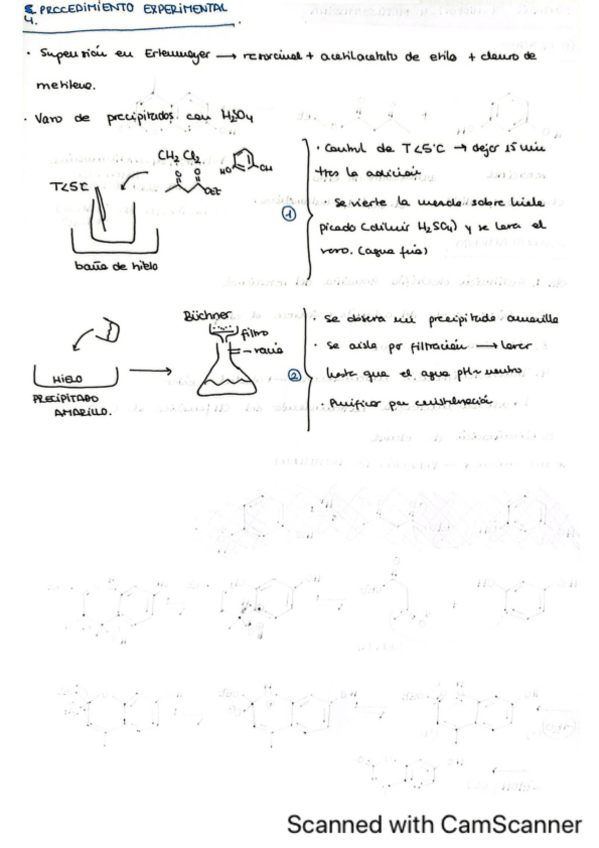 PROCEDIMIENTO EXPERIMENTAL
4.
· Suspensión en Erlenmeyer → resorcinol + acetilacetato de etilo + cloruro de
metileno.
· Vaso de precipitados con H₂SO₄
CH₂Cl₂
HO OH
T<5ºC
O O
OEt
baño de hielo
①
· Control de T<5ºC → dejar 15 min
tras la adición
· Se vierte la mezcla sobre hielo
picado (diluir H₂SO₄) y se lava el
vaso. (agua fría)
Büchner
filtro
vacío
HIELO
PRECIPITADO
AMARILLO.
②
· Se observa un precipitado amarillo
· Se aísla por filtración → lavar
hasta que el agua pH neutro
· Purificar por cristalización
Scanned with CamScanner